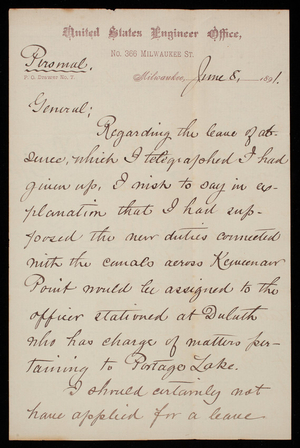 United States Engineer Office,
No. 366 Milwaukee St.
Personal.
P. O. Drawer No. 7.
Milwaukee, June 8, 1891.
General;
Regarding the leave of ab-
sence, which I telegraphed I had
given up, I wish to say in ex-
planation that I had sup-
posed the new duties connected
with the canals across Keweenaw
Point would be assigned to the
officer stationed at Duluth
who has charge of matters per-
taining to Portage Lake.
I should certainly not
have applied for a leave